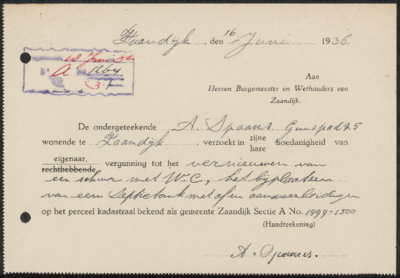 Zaandijk, den 16 Juni 1936.
18 Juni 36
A
Aan
Heeren Burgemeester en Wethouders van
Zaandijk.
De ondergeteekende A. Spaans
wonende te Zaandijk verzoekt in zijne hare hoedanigheid van
eigenaar, rechthebbende, vergunning tot het vernieuwen van
een schuur met W.C., het bijplaatsen
van een septictank met afen aanvoerleidingen
op het perceel kadastraal bekend als gemeente Zaandijk Sectie A No. 1499-1500
(Handteekening)
A. Spaans.